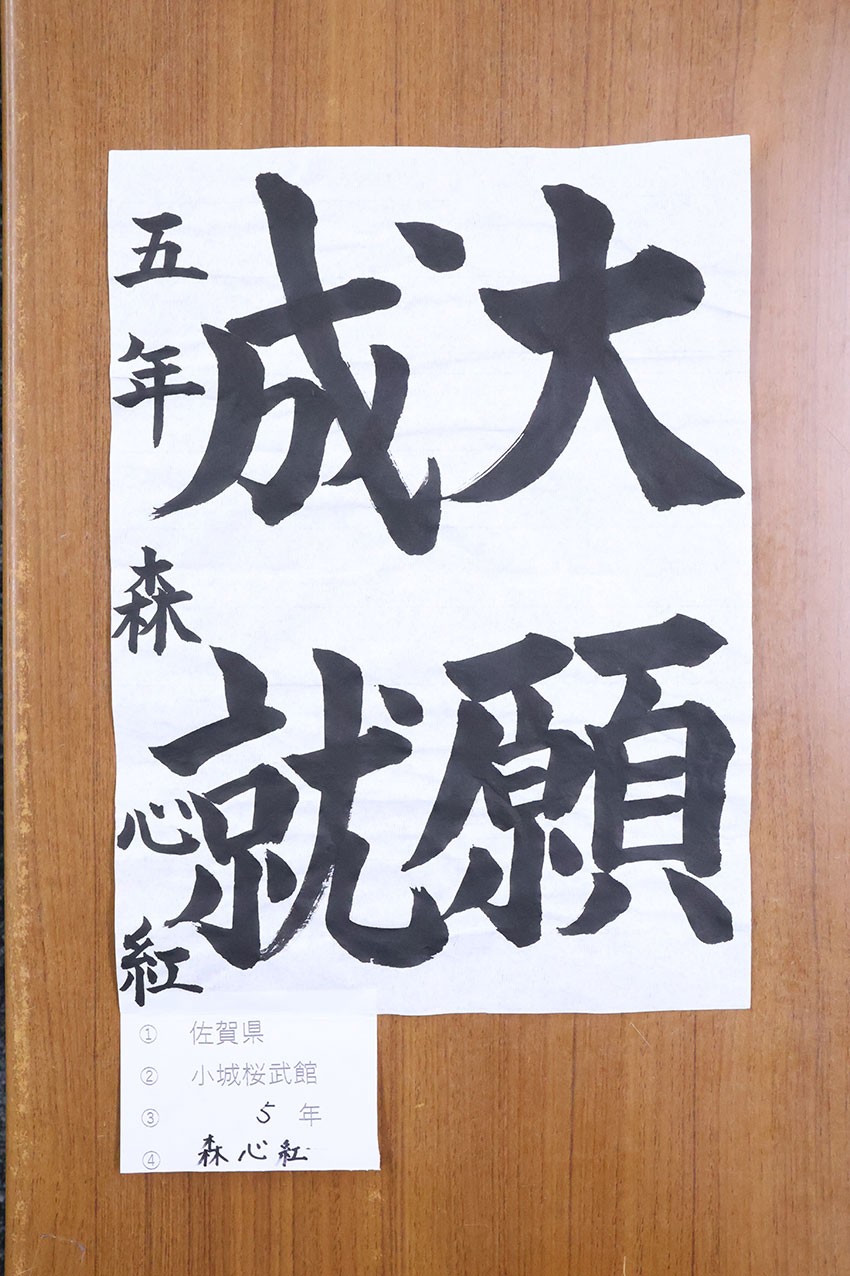 大願
成就
五年 森 心紅
① 佐賀県
② 小城桜武館
③ 5 年
④ 森心紅